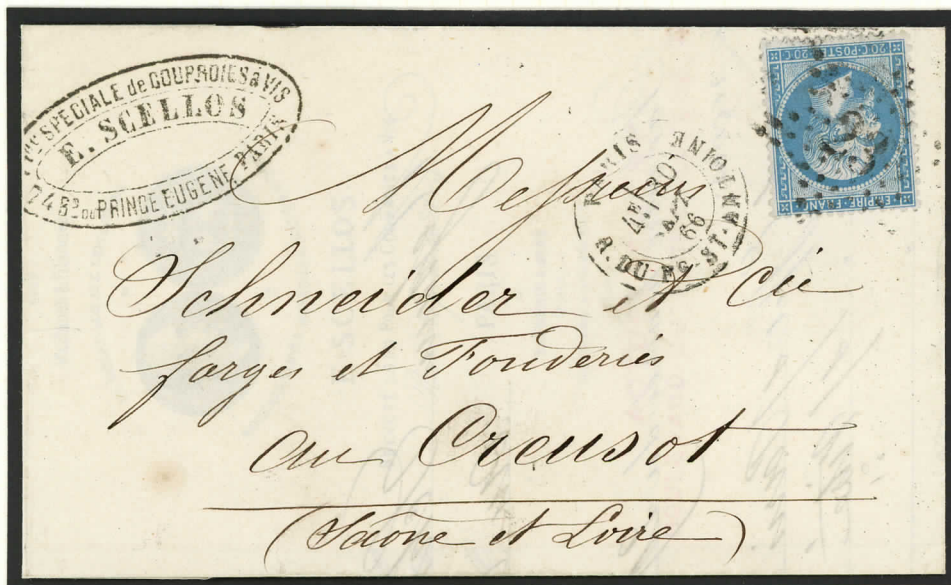 SPECIALE de COURROIES à VIS
E. SCELLOS
74 Bd. DU PRINCE EUGENE PARIS
20 C. POSTES 20 C.
EMPIRE FRANC
PARIS
4E 20
66
R. DU FG-ST-ANTOINE
Messieurs
Schneider et Cie
forges et Fonderies
au Creusot
(Saône et Loire)